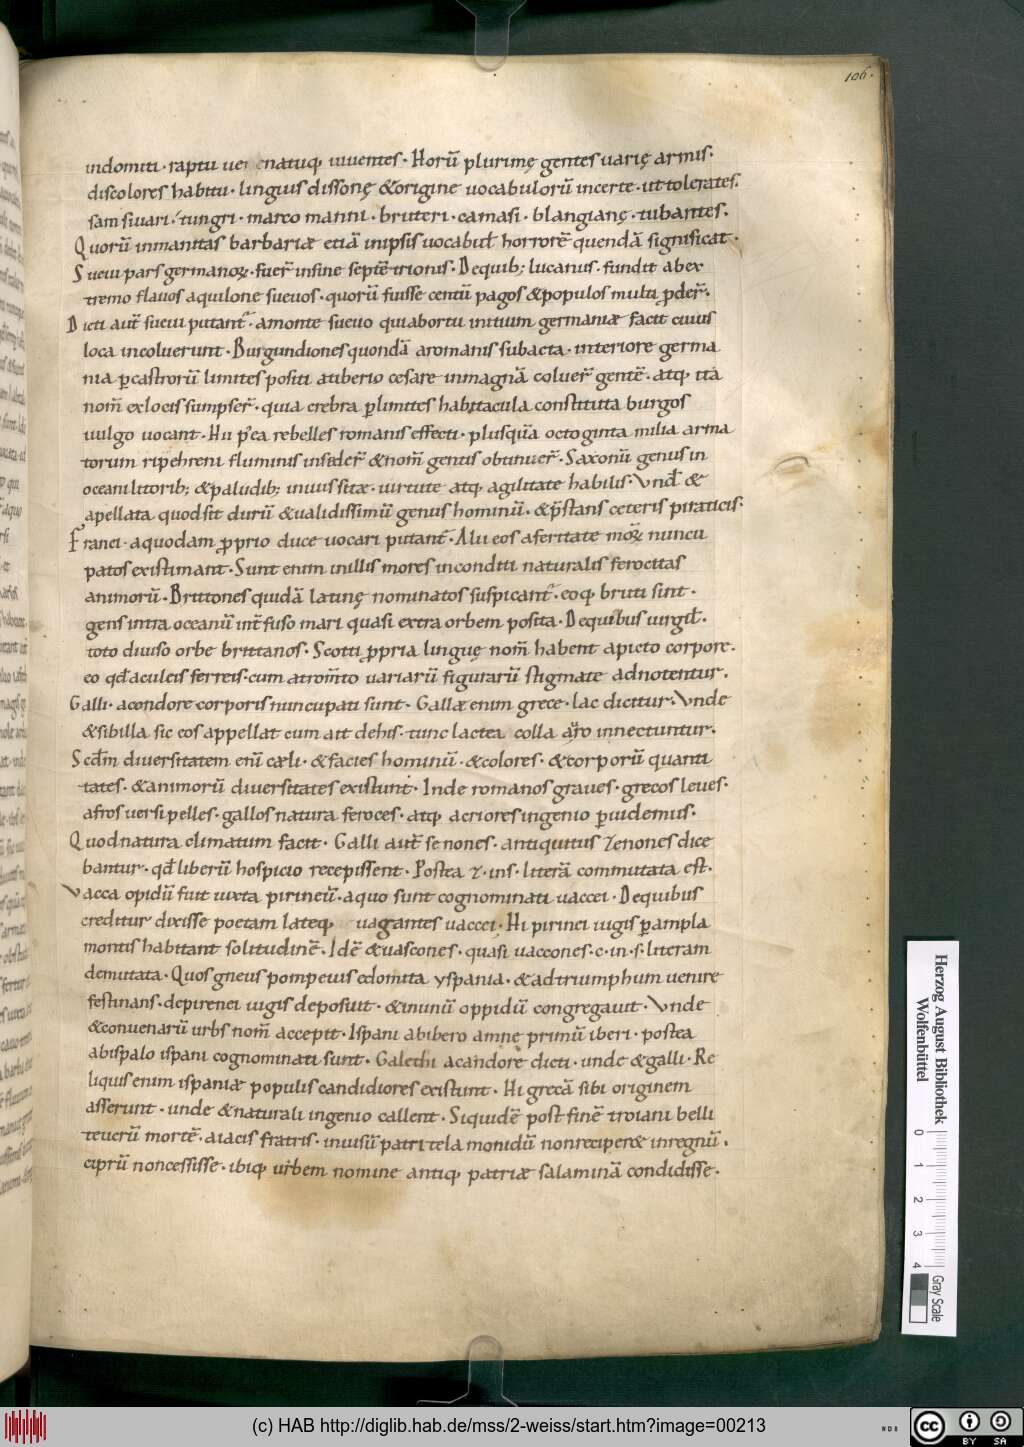 106.
indomiti · raptu uenenatuq; uiuentes · Horū plurimę gentes uarię armis·
discolores habitu · linguis dissonę &origine uocabulorū incerte · ut tolerates·
sam siuari · tungri · marco manni · bruteri · camasi · blangianę · tubantes·
Quorū inmanitas barbariæ etiā inipsis uocabuł horrorē quendā significat ·
Sueui pars germanoꝝ · fuer̄ infine septētrionis · Dequib; lucanus · fundit abex
tremo flauos aquilone sueuos · quorū fuisse centū pagos &populos multi ꝓder̄·
Dicti aut̄ sueui putant̄ · amonte sueuo quiabortu initium germaniæ facit cuius
loca incoluerunt · Burgundiones quondā aromanis subacta · interiore germa
nia ꝑcastrorū limites positi atiberio cesare inmagnā coluer̄ gentē · atq; ita
nom̄ exlocis sumpser̄ · quia crebra ꝑlimites habitacula constituta burgos
uulgo uocant · Hii p̄ea rebelles romanis effecti · plusquā octoginta milia arma
torum ripehreni fluminis insęder̄ &nom̄ gentis obtinuer̄ · Saxonū genus in
oceanilitorib; &paludib; inuiis sitæ · uirtute atq; agilitate habilis · Vnđ &
apellata quodsit durū &ualidissimū genus hominū · &p̄stans ceteris piraticis·
Franci · aquodam ꝓprio duce uocari putant̄ · Alii eos aferitate moꝝ nuncu
patos existimant · Sunt enim inillis mores inconditi naturalis ferocitas
animorū · Brittones quidā latinę nominatos suspicant̄ · eoq; bruti sint ·
gens intra oceanū int̄fuso mari quasi extra orbem posita · Dequibus uirgił·
toto diuiso orbe brittanos · Scotti ꝓpria linguę nom̄ habent apicto corpore·
eo qđ aculeis ferreis · cum atrom̄to uariarū figurarū stigmate adnotentur·
Galli · acondore corporis nuncupati sunt · Gallæ enim grece · lac dicitur · Vnde
&sibilla sic eos appellat cum ait dehis · tunc lactea colla auro innectuntur·
Scđm diuersitatem enī cæli · &facies hominū · &colores · &corporū quanti
tates · &animorū diuersitates existunt · Inde romanos graues · grecos leues·
afros uersipelles · gallos natura feroces · atq; acriores ingenio ꝑuidemus·
Quodnatura climatum facit · Galli aut̄ senones · antiquitus zenones dice
bantur · qđ liberū hospicio recepissent · Postea z · ins · literā commutata est·
Vacca opidū fuit iuxta pirineū · aquo sunt cognominati uaccei · Dequibus
creditur dixisse poetam lateq; uagantes uaccei · Hi pirinei iugis ꝑampla
montis habitant solitudinē · Idē &uascones · quasi uaccones · c · in · s · literam
demutata · Quos gneus pompeius edomita yspania · &adtriumphum uenire
festinans · depirenei iugis deposuit · &inunū oppidū congregauit · Vnde
&conuenarū urbs nom̄ accepit · Ispani abibero amne primū iberi · postea
abispalo ispani cognominati sunt · Galethi acandore dicti · unde &galli · Re
liquis enim ispaniæ populis candidiores existunt · Hi grecā sibi originem
asserunt · unde &naturali ingenio callent · Siquidē post finē troiani belli
teucrū mortē · aiacis fratris · inuisū patri tela monidū nonreciper& inregnū ·
ciprū noncessisse · ibiq; urbem nomine antiq; patriæ salaminā condidisse·
Herzog August Bibliothek
Wolfenbüttel
0 1 2 3 4
Gray Scale
(c) HAB http://diglib.hab.de/mss/2-weiss/start.htm?image=00213
cc BY SA